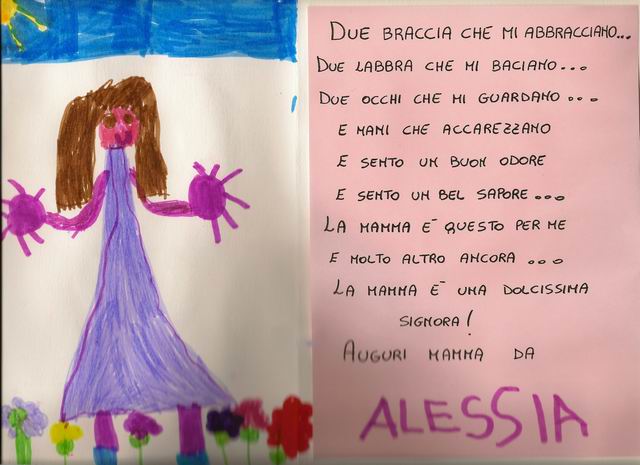 DUE BRACCIA CHE MI ABBRACCIANO...
DUE LABBRA CHE MI BACIANO...
DUE OCCHI CHE MI GUARDANO...
E MANI CHE ACCAREZZANO
E SENTO UN BUON ODORE
E SENTO UN BEL SAPORE...
LA MAMMA E' QUESTO PER ME
E MOLTO ALTRO ANCORA...
LA MAMMA E' UNA DOLCISSIMA
SIGNORA!
AUGURI MAMMA DA
ALESSIA